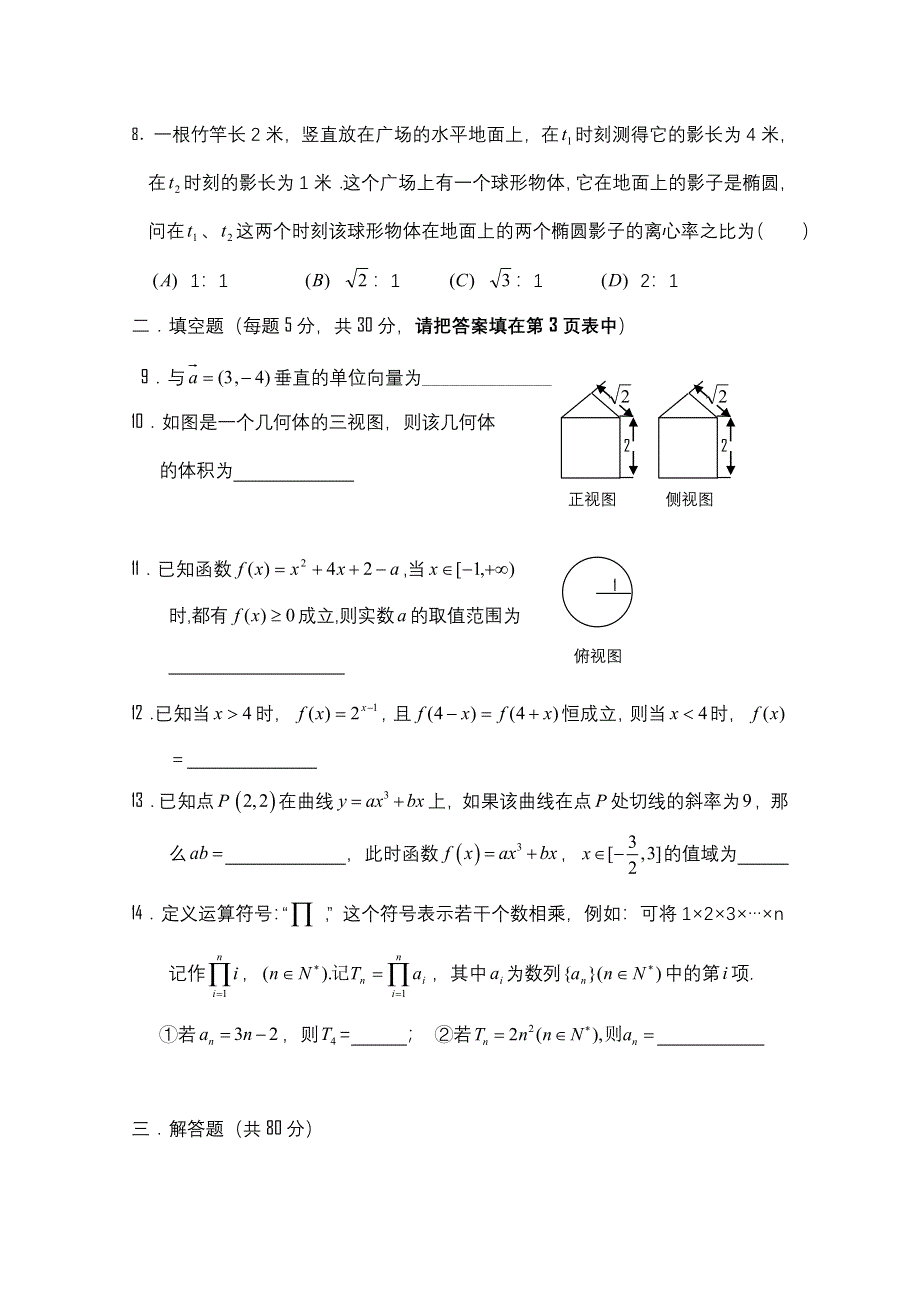 8. 一根竹竿长 2 米，竖直放在广场的水平地面上，在 $t_1$ 时刻测得它的影长为 4 米，
在 $t_2$ 时刻的影长为 1 米 .这个广场上有一个球形物体，它在地面上的影子是椭圆，
问在 $t_1$ 、$t_2$ 这两个时刻该球形物体在地面上的两个椭圆影子的离心率之比为(　　)
(A) 1：1　(B) $\sqrt{2}$：1　(C) $\sqrt{3}$：1　(D) 2：1
二．填空题（每题 5 分，共 30 分，请把答案填在第 3 页表中）
9．与 $\vec{a}=(3,-4)$ 垂直的单位向量为______________
10．如图是一个几何体的三视图，则该几何体
的体积为______________
$\sqrt{2}$　$\sqrt{2}$
2　2
正视图　侧视图
11．已知函数 $f(x)=x^2+4x+2-a$ ,当 $x\in[-1,+\infty)$
时,都有 $f(x)\geq 0$ 成立,则实数 $a$ 的取值范围为
____________________
1
俯视图
12 .已知当 $x>4$ 时， $f(x)=2^{x-1}$，且 $f(4-x)=f(4+x)$ 恒成立，则当 $x<4$ 时， $f(x)$
＝_______________
13．已知点 $P(2,2)$ 在曲线 $y=ax^3+bx$ 上，如果该曲线在点 $P$ 处切线的斜率为 9，那
么 $ab=$______________，此时函数 $f(x)=ax^3+bx$，$x\in[-\frac{3}{2},3]$ 的值域为______
14．定义运算符号：“$\prod$ ,” 这个符号表示若干个数相乘，例如：可将 1×2×3×…×n
记作 $\prod_{i=1}^{n} i$，$(n\in N^*)$.记 $T_n=\prod_{i=1}^{n} a_i$，其中 $a_i$ 为数列 $\{a_n\}(n\in N^*)$ 中的第 $i$ 项.
①若 $a_n=3n-2$，则 $T_4$=______；　②若 $T_n=2n^2(n\in N^*)$,则 $a_n=$____________
三．解答题（共 80 分）